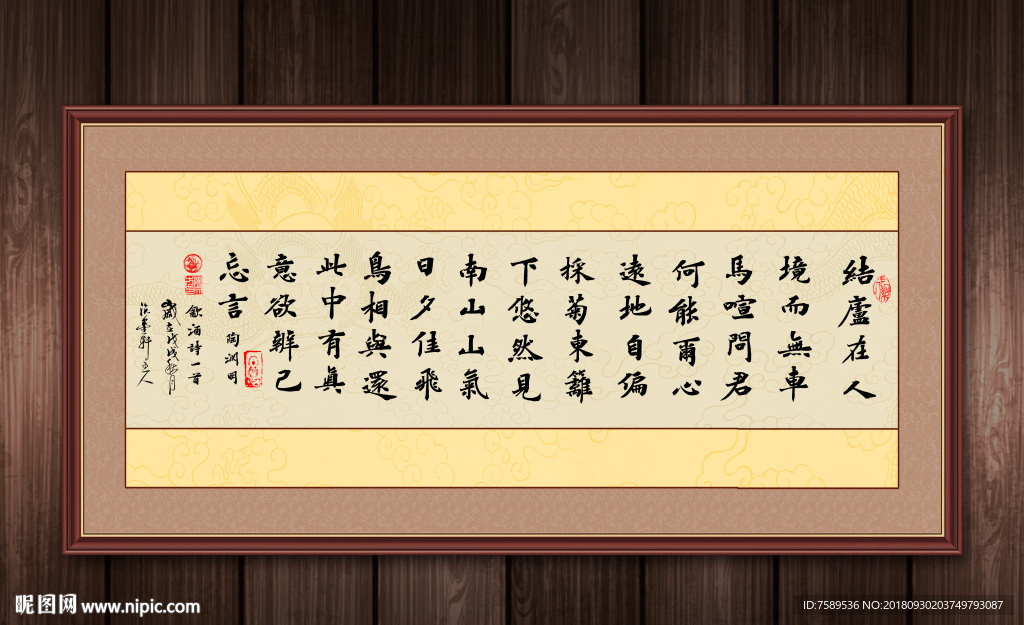 結廬在人
境而無車
馬喧問君
何能爾心
遠地自偏
採菊東籬
下悠然見
南山山氣
日夕佳飛
鳥相與還
此中有真
意欲辨己
忘言
陶淵明
飲酒詩一首
昵图网 www.nipic.com
ID:7589536 NO:20180930203749793087